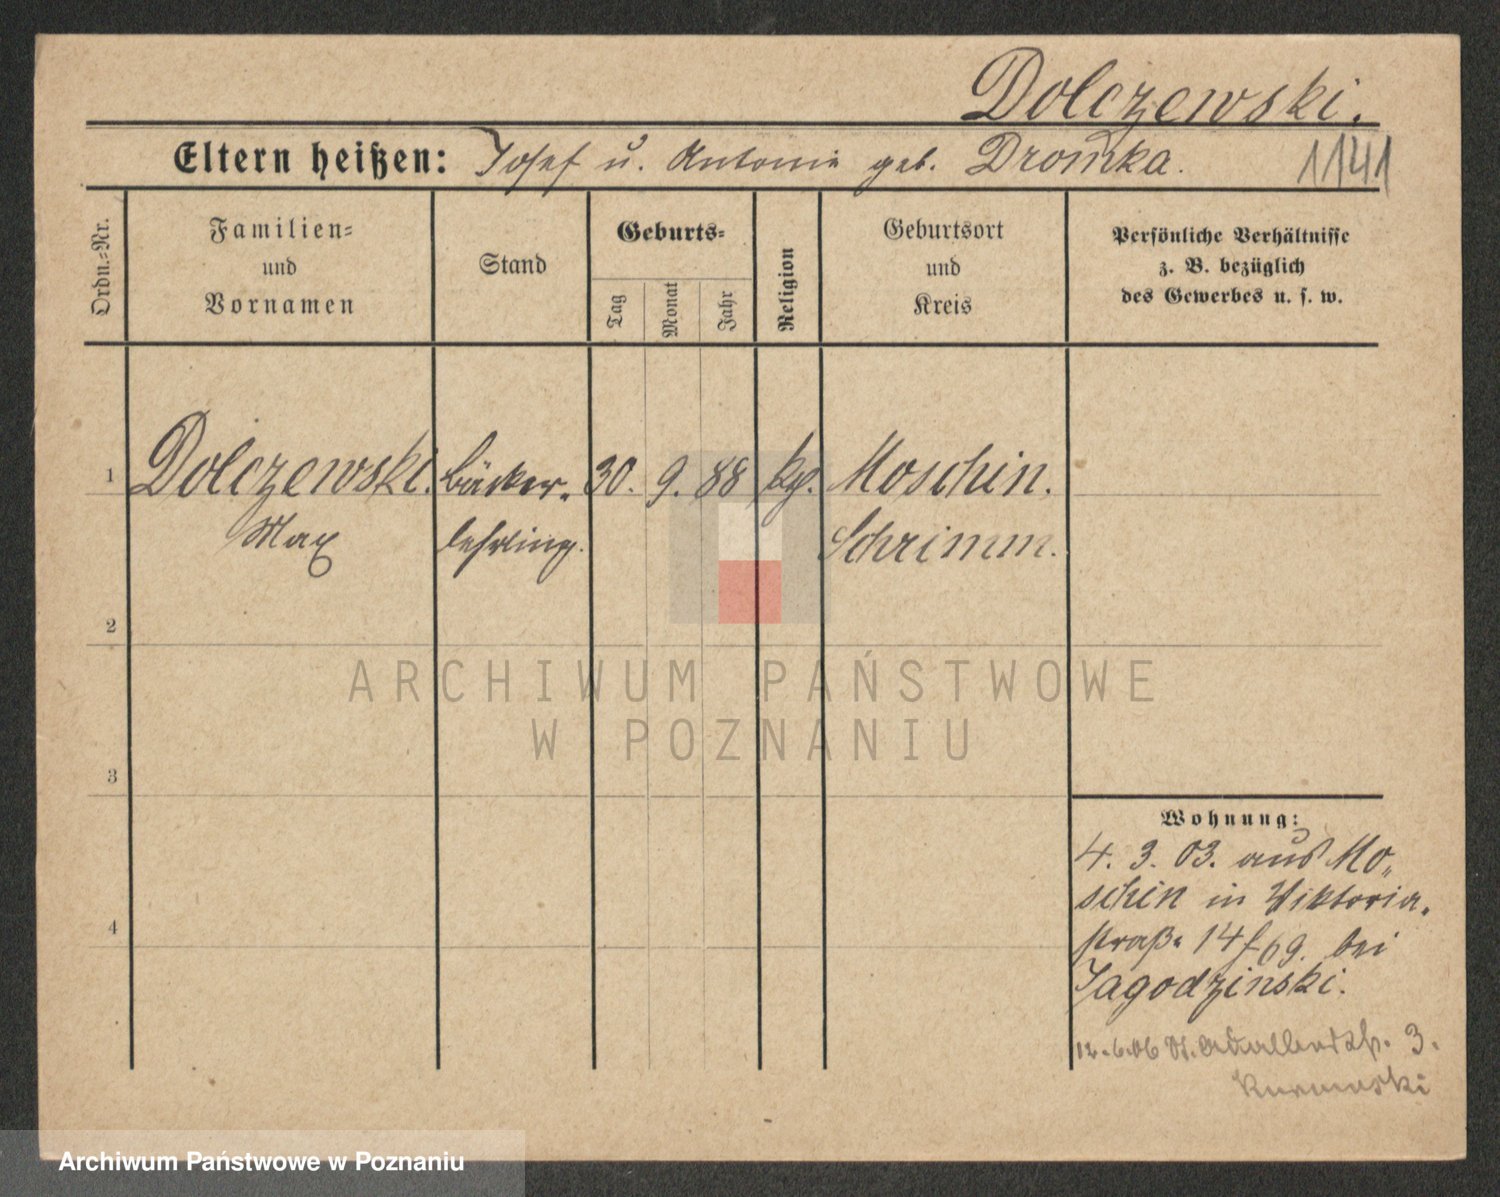 Dolczewski.
Eltern heißen: Josef u. Antonie geb. Dromka.
1141
Ordn.=Nr.
Familien=
und
Vornamen
Stand
Geburts=
Tag
Monat
Jahr
Religion
Geburtsort
und
Kreis
Persönliche Verhältnisse
z. B. bezüglich
des Gewerbes u. s. w.
1 Dolczewski. Bäcker- 30. 9. 88 kgl. Moschin.
Max lehrling. Schrimm.
2
3
4
Wohnung:
4. 3. 03. aus Mo-
schin in Viktoria-
straße 14 bei
Jagodzinski.
12.6.06 St. Adalbertstr. 3.
ARCHIWUM PAŃSTWOWE
W POZNANIU
Archiwum Państwowe w Poznaniu